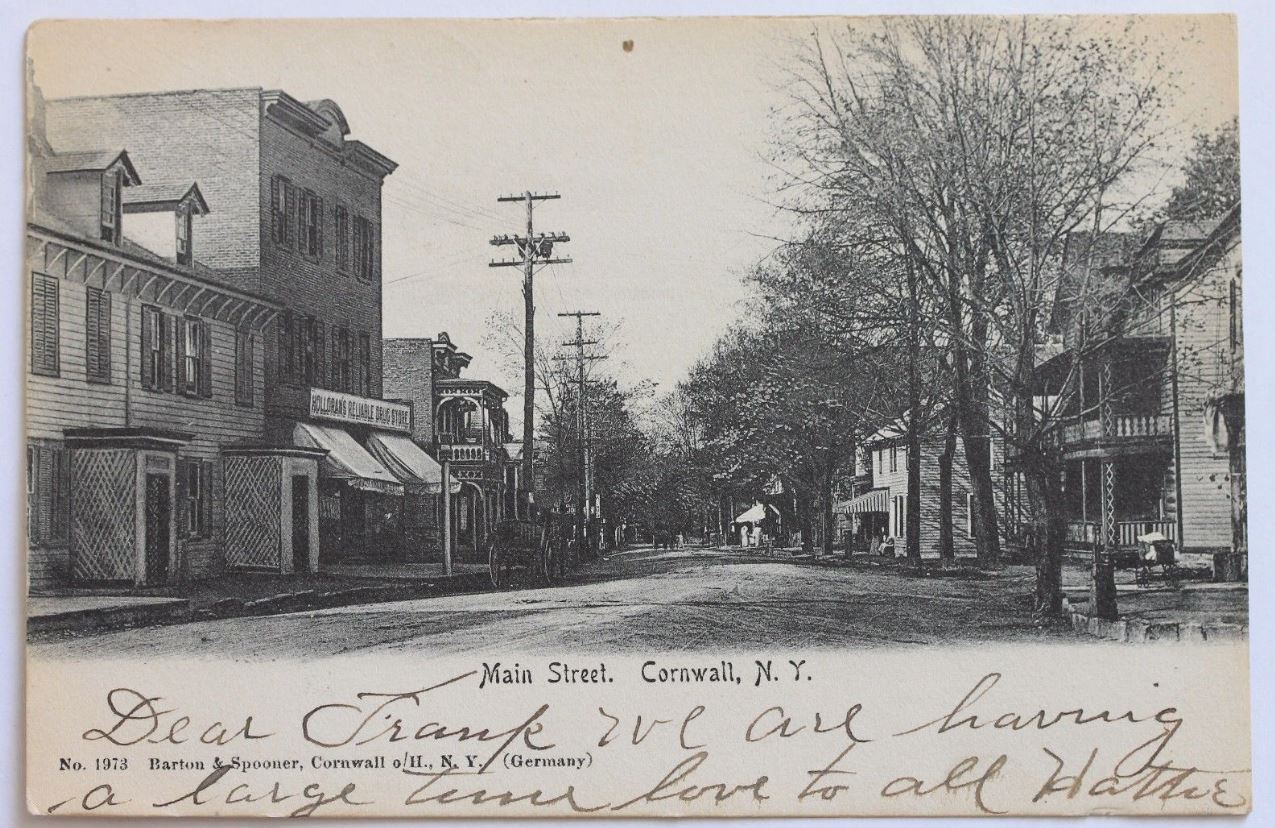 HOLLORAN'S RELIABLE DRUG STORE
Main Street. Cornwall, N. Y.
Dear Frank We are having
No. 1973 Barton & Spooner, Cornwall o/H., N. Y. (Germany)
a large time love to all Hattie